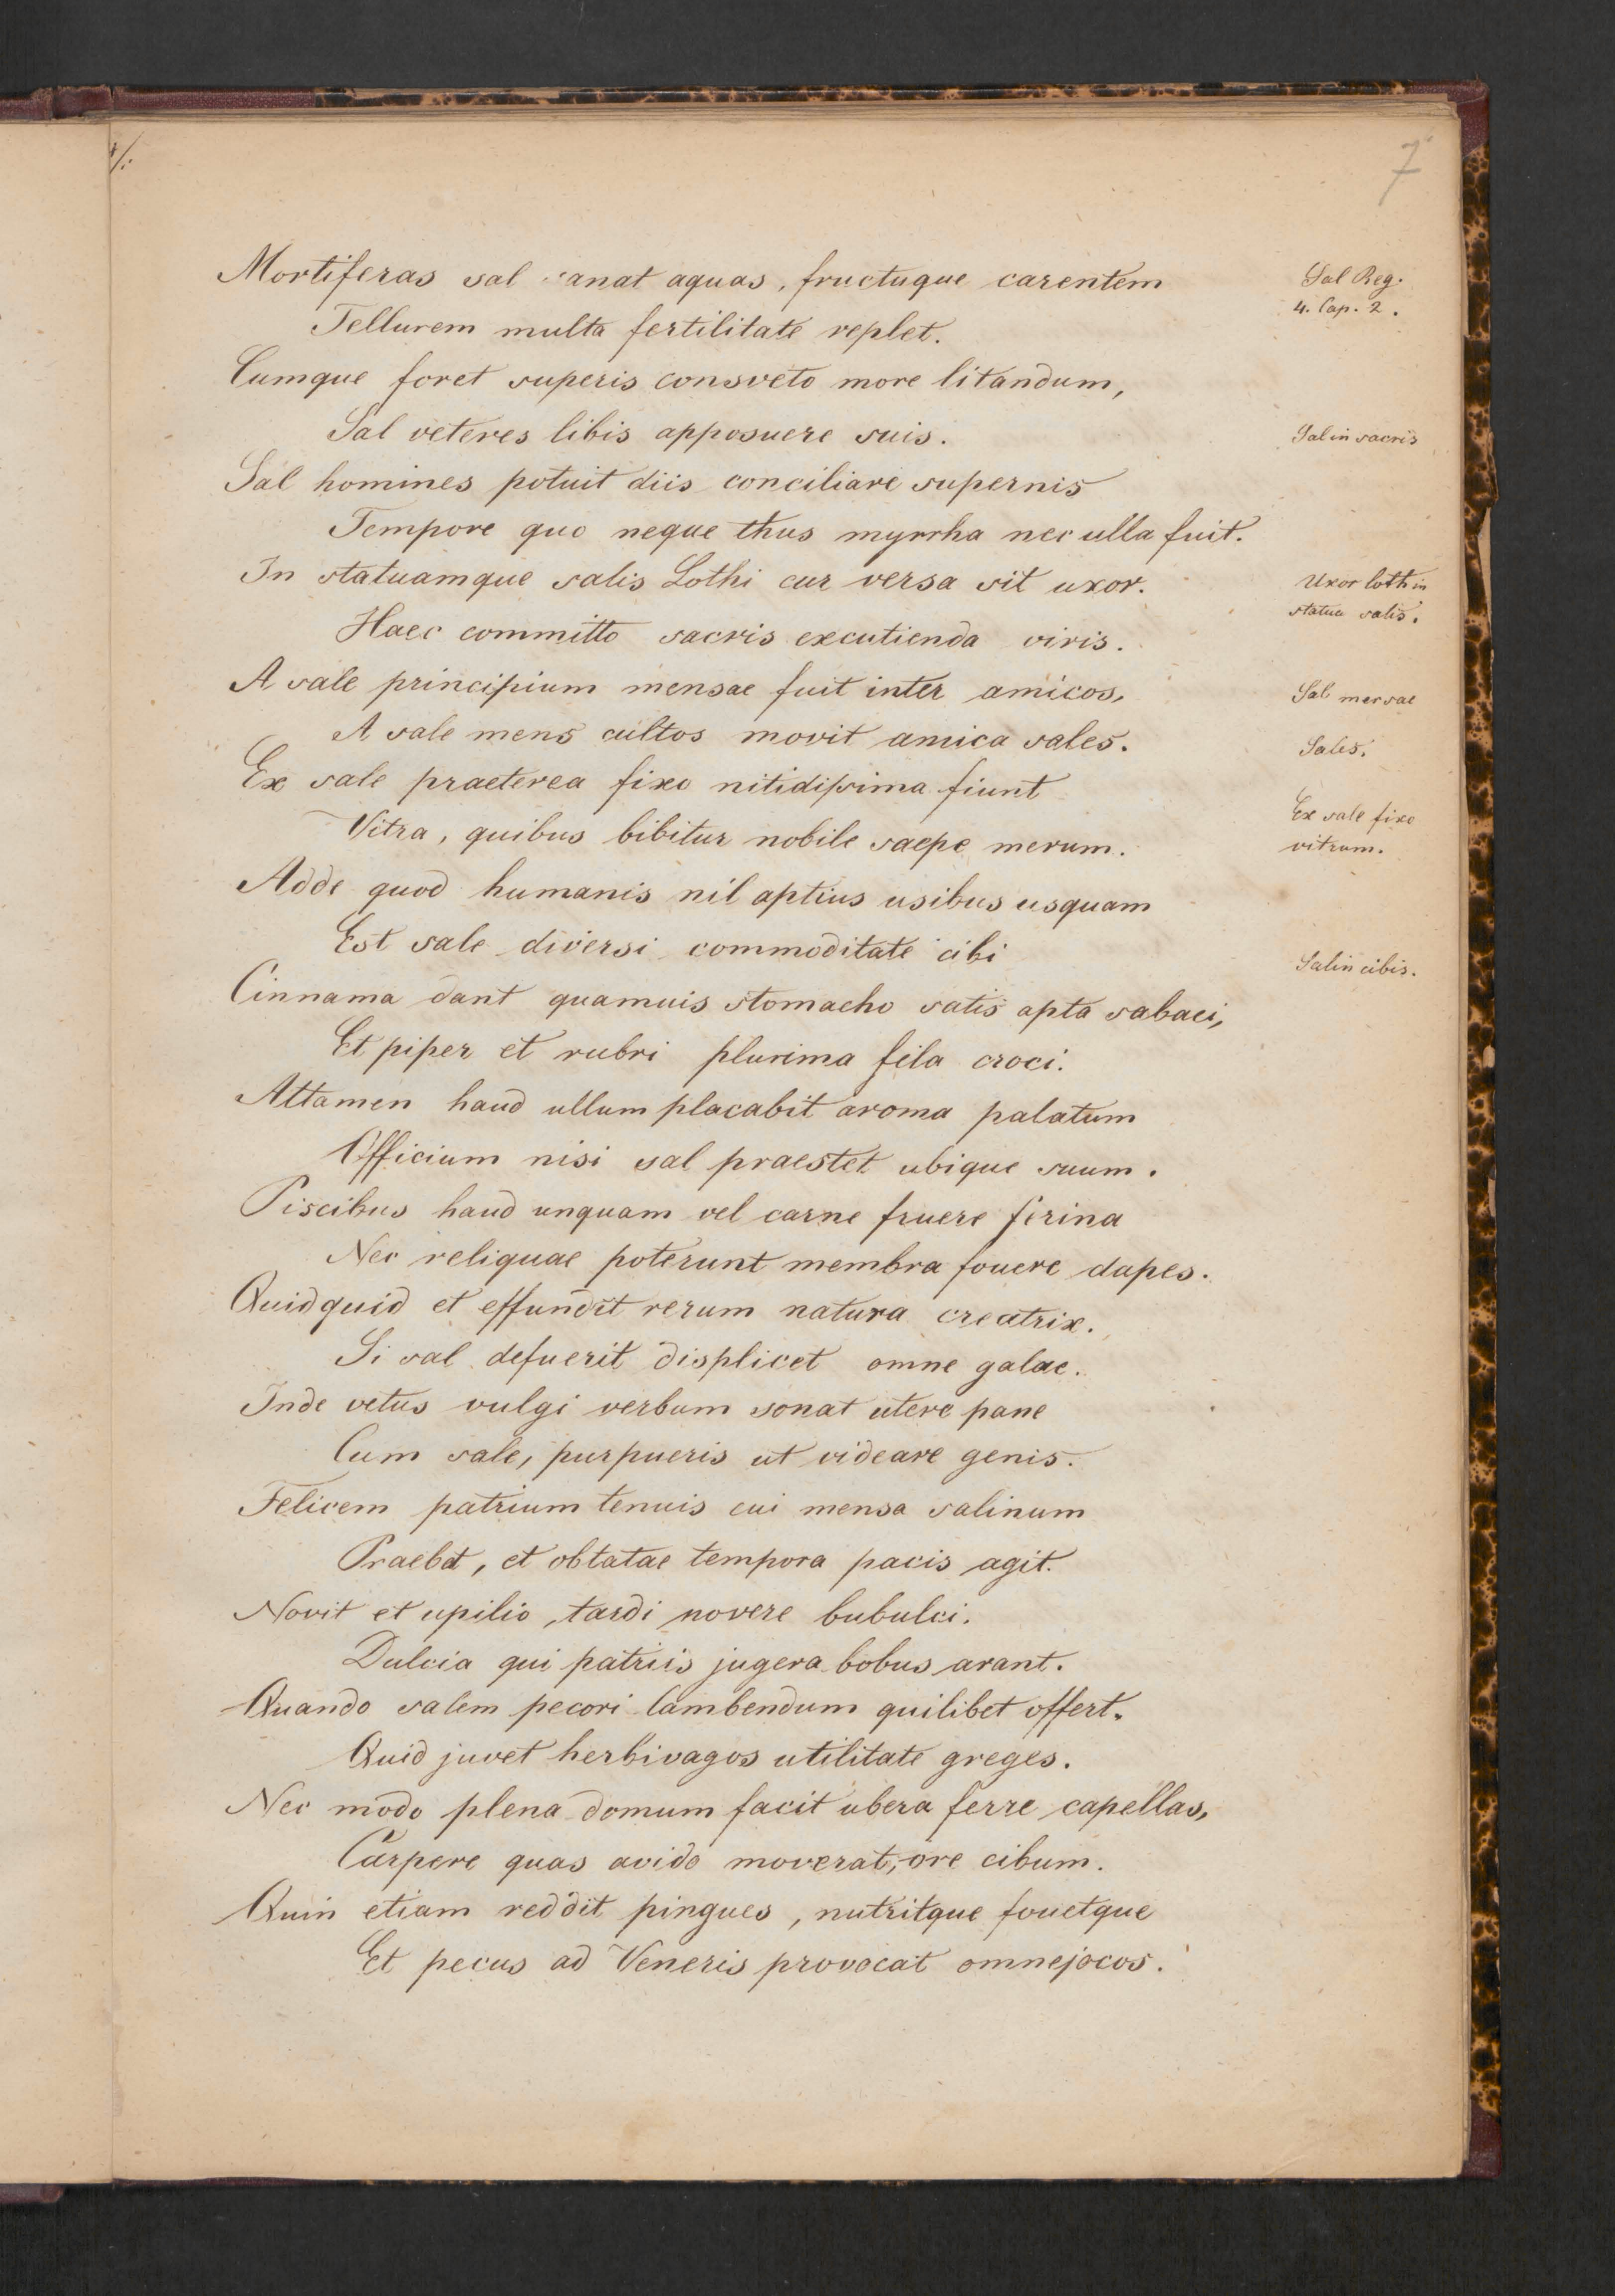 7
Mortiferas sal sanat aquas, fructuque carentem
Sal Reg.
4. Cap. 2.
Tellurem multa fertilitate replet.
Cumque foret superis consveto more litandum,
Sal veteres libis apposuere suis.
Sal in sacris
Sal homines potuit diis conciliare supernis
Tempore quo neque thus myrrha nec ulla fuit.
In statuamque salis Lothi cur versa sit uxor.
Uxor loth in
statua salis.
Haec committo sacris excutienda viris.
A sale principium mensae fuit inter amicos,
Sal mersae
A sale mens cultos movit amica sales.
Sales.
Ex sale praeterea fixo nitidissima fiunt
Ex sale fixo
vitrum.
Vitra, quibus bibitur nobile saepe merum.
Adde quod humanis nil aptius usibus usquam
Est sale diversi commoditate cibi
Sal in cibis.
Cinnama dant quamuis stomacho satis apta sabaei,
Et piper et rubri plurima fila croci.
Attamen haud ullum placabit aroma palatum
Officium nisi sal praestet ubique suum.
Piscibus haud unquam vel carne fruere ferina
Nec reliquae poterunt membra fouere dapes.
Quidquid et effundit rerum natura creatrix.
Si sal defuerit displicet omne galae.
Inde vetus vulgi verbum sonat utere pane
Cum sale, purpueris ut videare genis.
Felicem patrium tenuis cui mensa salinum
Praebet, et obtatae tempora pacis agit.
Novit et upilio, tardi novere bubulci.
Dulcia qui patriis jugera bobus arant.
Quando salem pecori lambendum quilibet offert.
Quid juvet herbivagos utilitate greges.
Nec modo plena domum facit ubera ferre capellas,
Carpere quas avido moverat, ore cibum.
Quin etiam reddit pingues, nutritque fouetque
Et pecus ad Veneris provocat omne jocos.